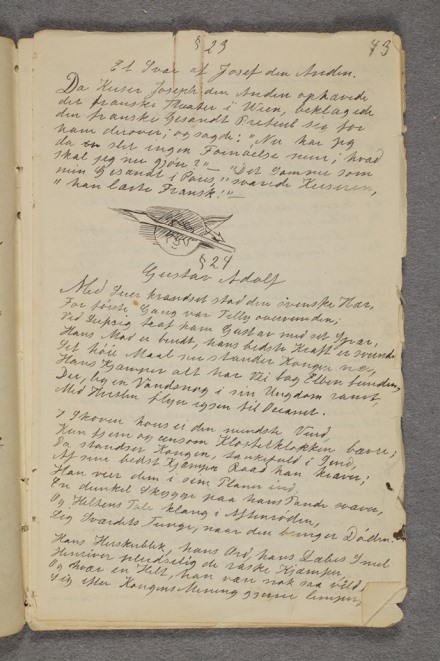 § 23
43
Et Svar af Josef den Anden.
Da Keiser Joseph den Anden ophævede
det franske Theater i Wien, beklagede
den franske Gesandt sig for
ham derover; og sagde: "Nu har jeg
da slet ingen Fornøielse mere; hvad
skal jeg nu gjøre?" — "Det samme som
min Gesandt i Paris," svarede Keiseren,
"han lærte Fransk." —
§ 24
Gustav Adolf
Med Seier krandset stod den svenske Hær,
For første Gang var Tilly overvunden;
Ved Leipzig traf ham Gustav med sit Sværd,
Hans Mod er bøiet, hans bedste Kraft er svunden
Sit høie Maal nu stander Kongen nær,
Hans Kjæmper alt har Vei bag Elben funden,
Der, lig en Vandenvog i sin Ungdom
Med Hvislen flyer igjen til Oceanet.
I Skoven hvor er den mindste Vind,
Kun fjern og eensom Klosterklokken bæver;
Da standser Kongen, tankefuld i Sind,
Af sine bedste Kjæmper Raad han kræver;
Han veier dem i sin Plan ind,
En dunkel Skygge paa hans Pande svæver,
Og Heltens Tale klang i Aftenrøden,
Lig Sværdets Tunge, naar den bringer Døden.
Hans Herskerblik, hans Ord, hans Læbes Smil
Henriver de raske Kjæmper,
Og hvor en Helt, han var nok saa vild,
Sig efter Kongens Mening gjerne lemper,